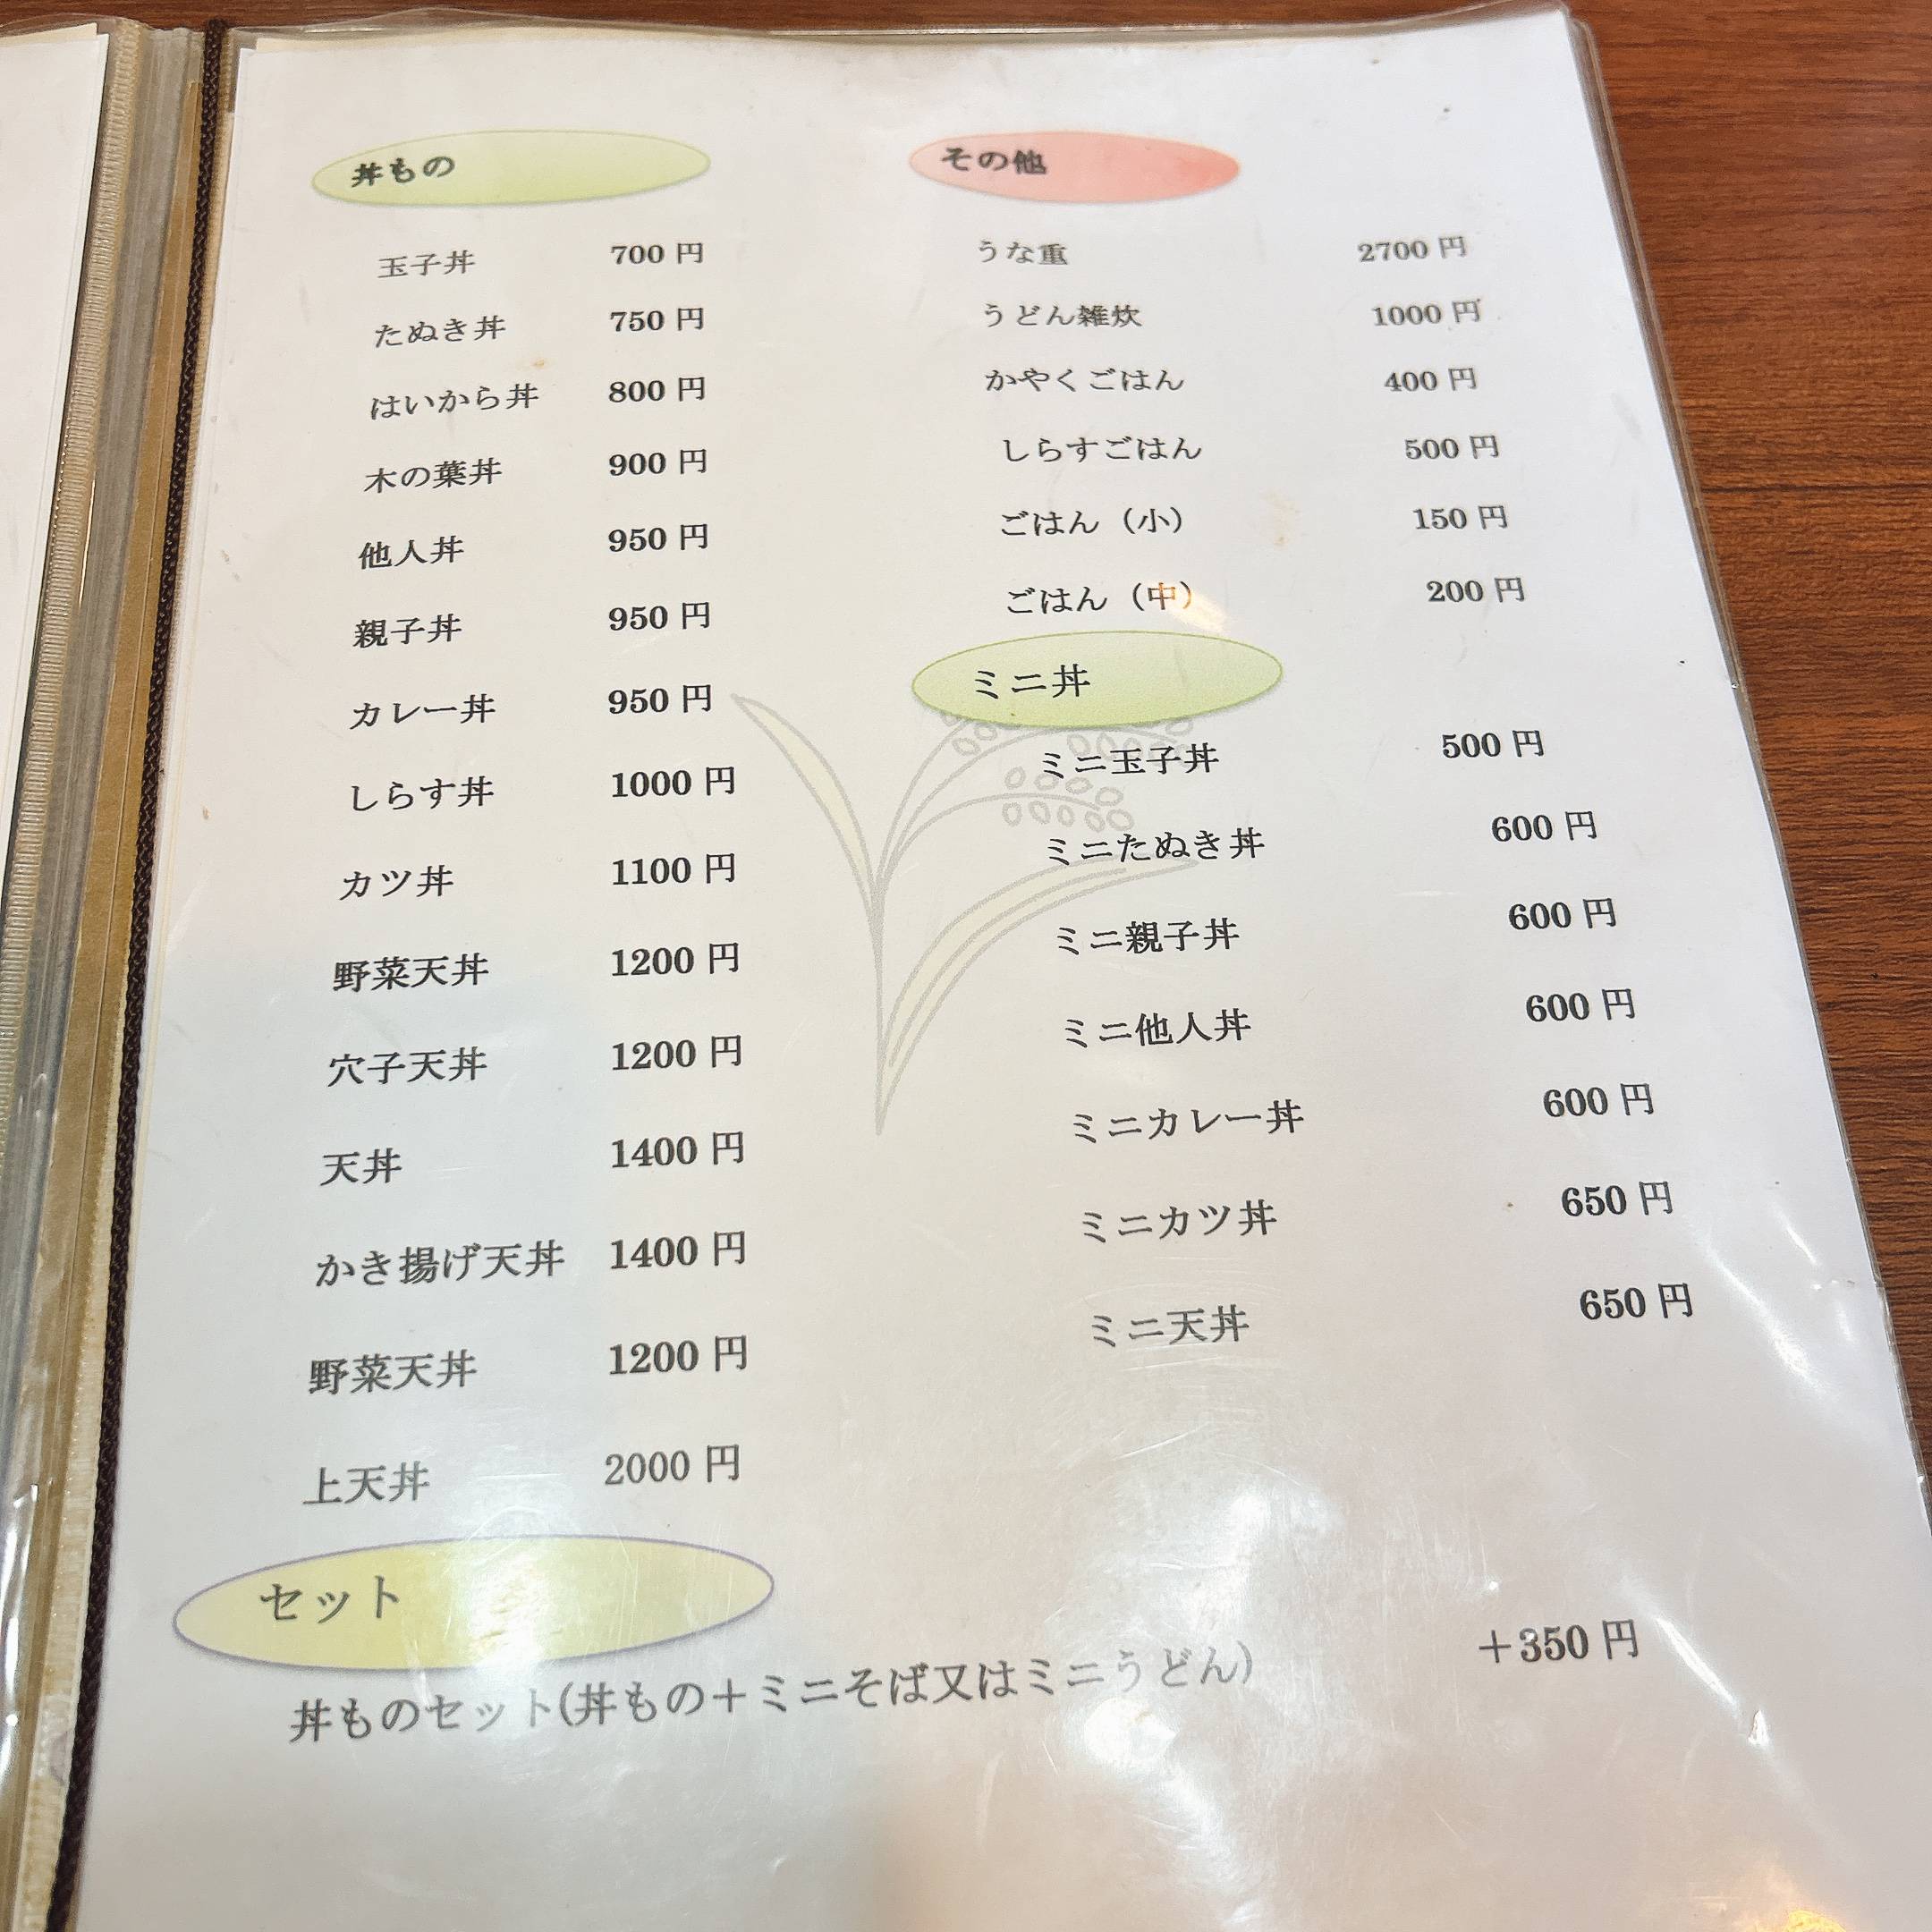 丼もの
玉子丼 700円
たぬき丼 750円
はいから丼 800円
木の葉丼 900円
他人丼 950円
親子丼 950円
カレー丼 950円
しらす丼 1000円
カツ丼 1100円
野菜天丼 1200円
穴子天丼 1200円
天丼 1400円
かき揚げ天丼 1400円
野菜天丼 1200円
上天丼 2000円
その他
うな重 2700円
うどん雑炊 1000円
かやくごはん 400円
しらすごはん 500円
ごはん（小） 150円
ごはん（中） 200円
ミニ丼
ミニ玉子丼 500円
ミニたぬき丼 600円
ミニ親子丼 600円
ミニ他人丼 600円
ミニカレー丼 600円
ミニカツ丼 650円
ミニ天丼 650円
セット
丼ものセット(丼もの＋ミニそば又はミニうどん) ＋350円